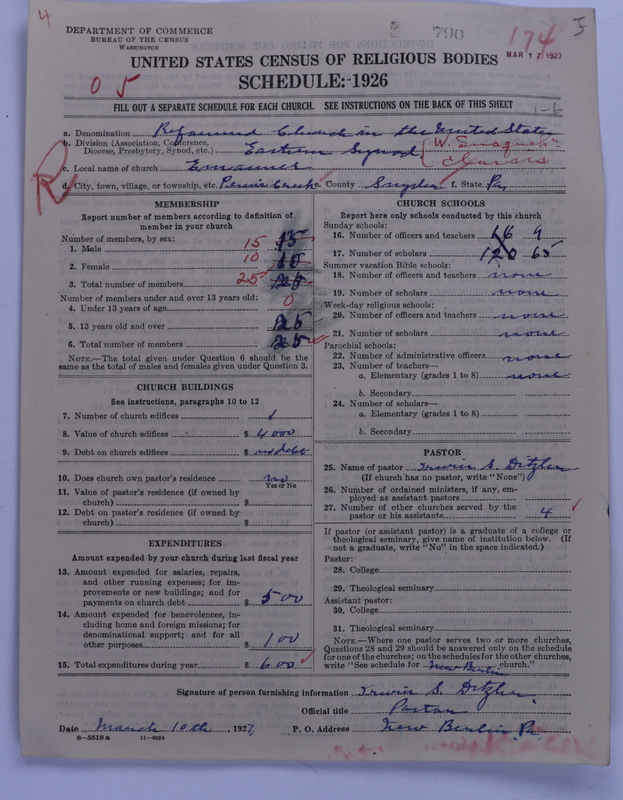 4
DEPARTMENT OF COMMERCE
BUREAU OF THE CENSUS
WASHINGTON
790
174
MAR 17 1927
UNITED STATES CENSUS OF RELIGIOUS BODIES
SCHEDULE:-1926
0 5
FILL OUT A SEPARATE SCHEDULE FOR EACH CHURCH. SEE INSTRUCTIONS ON THE BACK OF THIS SHEET
1-6
a. Denomination Reformed Church in the United States
b. Division (Association, Conference, Diocese, Presbytery, Synod, etc.) Eastern Synod { "W. Susqueh" Classis
c. Local name of church Emanuel
R
d. City, town, village, or township, etc. Penns Creek e. County Snyder f. State Pa
MEMBERSHIP
Report number of members according to definition of
member in your church
Number of members, by sex:
1. Male 15 15
2. Female 10 10
3. Total number of members 25 25
Number of members under and over 13 years old:
4. Under 13 years of age 0
5. 13 years old and over 25
6. Total number of members 25
NOTE.—The total given under Question 6 should be the
same as the total of males and females given under Question 3.
CHURCH BUILDINGS
See instructions, paragraphs 10 to 12
7. Number of church edifices 1
8. Value of church edifices $ 4,000
9. Debt on church edifices $ no debt
10. Does church own pastor's residence no
Yes or No
11. Value of pastor's residence (if owned by
church) $
12. Debt on pastor's residence (if owned by
church) $
EXPENDITURES
Amount expended by your church during last fiscal year
13. Amount expended for salaries, repairs,
and other running expenses; for im-
provements or new buildings; and for
payments on church debt $ 500
14. Amount expended for benevolences, in-
cluding home and foreign missions; for
denominational support; and for all
other purposes $ 100
15. Total expenditures during year $ 600
CHURCH SCHOOLS
Report here only schools conducted by this church
Sunday schools:
16. Number of officers and teachers 16 9
17. Number of scholars 120 65
Summer vacation Bible schools:
18. Number of officers and teachers none
19. Number of scholars none
Week-day religious schools:
20. Number of officers and teachers none
21. Number of scholars none
Parochial schools:
22. Number of administrative officers none
23. Number of teachers—
a. Elementary (grades 1 to 8) none
b. Secondary
24. Number of scholars—
a. Elementary (grades 1 to 8)
b. Secondary
PASTOR
25. Name of pastor Irwin S. Ditzler
(If church has no pastor, write "None")
26. Number of ordained ministers, if any, em-
ployed as assistant pastors
27. Number of other churches served by the
pastor or his assistants 4
If pastor (or assistant pastor) is a graduate of a college or
theological seminary, give name of institution below. (If
not a graduate, write "No" in the space indicated.)
Pastor:
28. College
29. Theological seminary
Assistant pastor:
30. College
31. Theological seminary
NOTE.—Where one pastor serves two or more churches,
Questions 28 and 29 should be answered only on the schedule
for one of the churches; on the schedules for the other churches,
write "See schedule for New Berlin church."
Signature of person furnishing information Irwin S. Ditzler
Official title Pastor
Date March 10th, 1927, P. O. Address New Berlin Pa
8—5518 a 11—9664